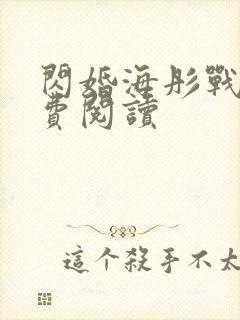 閃婚海彤戰
費閱讀
這个殺手不太